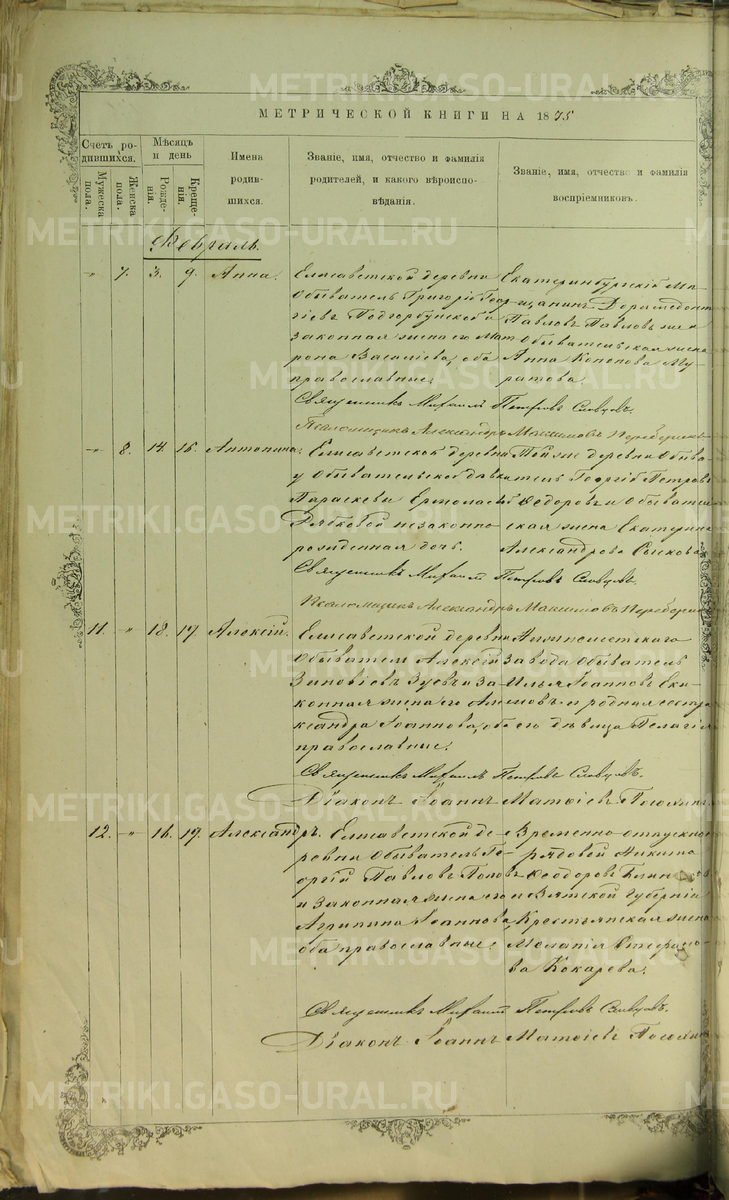 МЕТРИЧЕСКОЙ КНИГИ НА 1875
Счетъ родившихся.
Мужеска пола.
Женска пола.
Мѣсяцъ и день
Рожденія.
Крещенія.
Имена родившихся.
Званіе, имя, отчество и фамилія родителей, и какого вѣроисповѣданія.
Званіе, имя, отчество и фамилія воспріемниковъ.
Февраль.
" 7. 3. 9. Анна.
Елисаветской деревни
Обыватель Григорій Геор-
гіевъ Подгорбунской и
законная жена его Мат-
рона Василіева, оба
православные.
Екатеринбургскій мѣ-
щанинъ Дорамедонт
Павловъ Павловъ же и
Обывательская жена
Анна Кононова Му-
ратова.
Священникъ Михаилъ Петровъ Словцовъ.
Псаломщикъ Александръ Максимовъ
" 8. 14. 16. Антонина.
Елисаветской деревни
у Обывательской дѣвки
Параскевы Ермолаевой
Рябковой незаконно-
рожденная дочь.
деревни Обыва-
тель Георгій Петровъ
Ѳедоровъ и Обыватель-
ская жена Екатерина
Александрова
Священникъ Михаилъ Петровъ Словцовъ.
Псаломщикъ Александръ Максимовъ
11. " 13. 17. Алексій.
Елисаветской деревни
Обыватель Алексій
Зиновіевъ Зуевъ и за-
конная жена его Але-
ксандра Іоаннова, оба
православные.
завода Обыватель
Илья Іоанновъ
и родная сестра
его дѣвица Пелагія
Священникъ Михаилъ Петровъ Словцовъ.
Діаконъ Іоаннъ Матѳіевъ
12. " 16. 17. Александръ.
Елисаветской де-
ревни Обыватель Ге-
оргій Павловъ Поповъ
и законная жена его
Агрипина Іоаннова,
оба православные.
Временно-отпускной
рядовой Никита
Ѳеодоровъ
и Вятской губерніи
Крестьянская жена
Меланія Стефано-
ва Кокарева.
Священникъ Михаилъ Петровъ Словцовъ.
Діаконъ Іоаннъ Матѳіевъ
METRIKI.GASO-URAL.RU